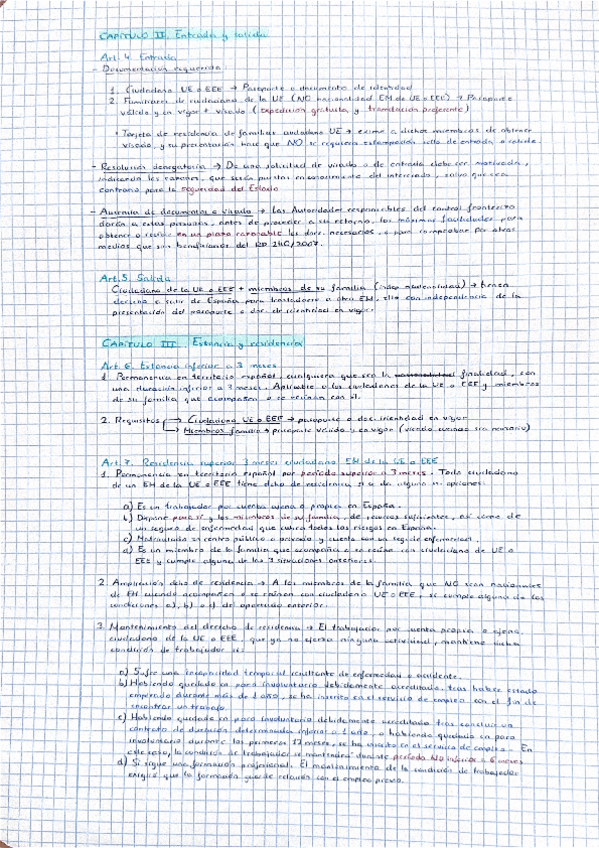 CAPÍTULO II. Entrada y salida
Art. 4. Entrada
- Documentación requerida:
1. Ciudadano UE o EEE → Pasaporte o documento de identidad
2. Familiares de ciudadano de la UE (NO nacionalidad EM de UE o EEE) → Pasaporte
válido y en vigor + visado (expedición gratuita y tramitación preferente)
• Tarjeta de residencia de familiar ciudadano UE → exime a dichos miembros de obtener
visado, y su presentación hace que NO se requiera estampación sello de entrada o salida.
- Resolución denegatoria → De una solicitud de visado o de entrada debe ser motivada,
indicando las razones, que serán puestas en conocimiento del interesado, salvo que sea
contrario para la seguridad del Estado
- Ausencia de documentos o visado → Las Autoridades responsables del control fronterizo
darán a estas personas, antes de proceder a su retorno, las máximas facilidades para
obtener o recibir en un plazo razonable los docs. necesarios, o para comprobar por otros
medios que son beneficiarios del RD 240/2007.
Art. 5. Salida
Ciudadano de la UE o EEE + miembros de su familia (indep nacionalidad) → tienen
derecho a salir de España para trasladarse a otro EM, ello con independencia de la
presentación del pasaporte o doc. de identidad en vigor.
CAPÍTULO III. Estancia y residencia
Art. 6. Estancia inferior a 3 meses
1. Permanencia en territorio español, cualquiera que sea la finalidad, con
una duración inferior a 3 meses. Aplicable a los ciudadanos de la UE o EEE y miembros
de su familia que acompañen o se reúnan con él.
2. Requisitos → Ciudadano UE o EEE → pasaporte o doc. identidad en vigor
→ Miembros familia → pasaporte válido y en vigor (visado cuando sea necesario)
Art. 7. Residencia superior 3 meses ciudadano EM de la UE o EEE
1. Permanencia en territorio español por período superior a 3 meses. Todo ciudadano
de un EM de la UE o EEE tiene dcho de residencia, si se da alguna opciones:
a) Es un trabajador por cuenta ajena o propia en España.
b) Dispone para sí y los miembros de su familia, de recursos suficientes, así como de
un seguro de enfermedad que cubra todos los riesgos en España.
c) Matriculado en centro público o privado y cuenta con un seg. de enfermedad.
d) Es un miembro de la familia que acompaña o se reúne con ciudadano de UE o
EEE y cumple alguna de las 3 situaciones anteriores.
2. Ampliación dcho de residencia → A los miembros de la familia que NO sean nacionales
de EM cuando acompañen o se reúnan con ciudadano UE o EEE, si cumple alguna de las
condiciones a), b) o c) de apartado anterior.
3. Mantenimiento del derecho de residencia → El trabajador por cuenta propia o ajena,
ciudadano de la UE o EEE, que ya no ejerza ninguna actividad, mantiene
condición de trabajador si:
a) Sufre una incapacidad temporal resultante de enfermedad o accidente.
b) Habiendo quedado en paro involuntario debidamente acreditado, tras haber estado
empleado durante más de 1 año, se ha inscrito en el servicio de empleo con el fin de
encontrar un trabajo.
c) Habiendo quedado en paro involuntario debidamente acreditado tras concluir un
contrato de duración determinada inferior a 1 año o habiendo quedado en paro
involuntario durante los primeros 12 meses, se ha inscrito en el servicio de empleo - En
este caso, la condición de trabajador se mantendrá durante período NO inferior a 6 meses
d) Si sigue una formación profesional. El mantenimiento de la condición de trabajador
exigirá que la formación guarde relación con el empleo previo.